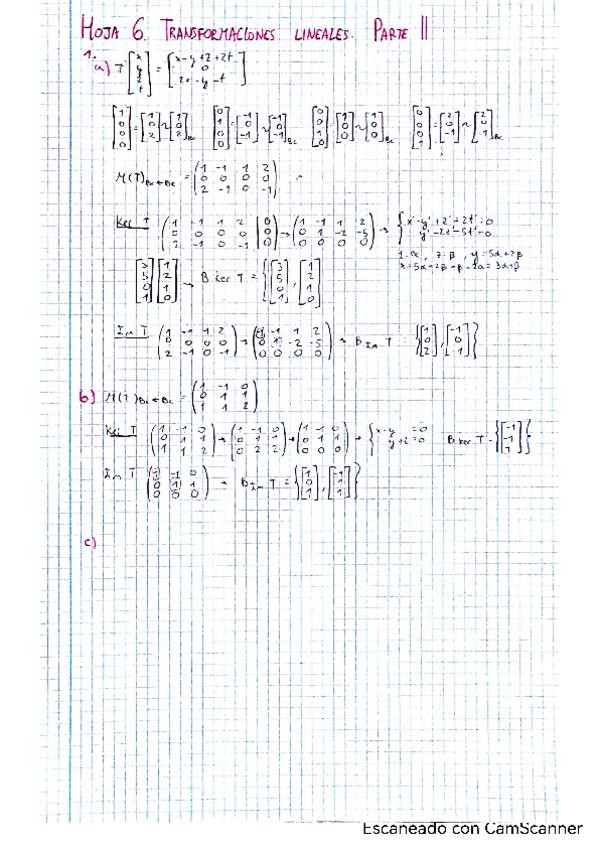 HOJA 6. TRANSFORMACIONES LINEALES. PARTE II
1.
a) T [x y z t] = [x-y+z+2t 0 2x-y-t]
[1 0 0 0] = [1 0 2] ~ [1 0 2]Bc [0 1 0 0] = [-1 0 -1] ~ [-1 0 -1]Bc [0 0 1 0] = [1 0 0] ~ [1 0 0]Bc [0 0 0 1] = [2 0 -1] ~ [2 0 -1]Bc
M(T)Bc←Bc = (1 -1 1 2 0 0 0 0 2 -1 0 -1)
Ker T (1 -1 1 2 0 0 0 0 2 -1 0 -1 | 0 0 0) → (1 -1 1 2 0 1 -2 -5) → { x-y+z+2t=0 y-2z-5t=0
t=α, z=β, y=5α+2β
x=5α+2β-β-2α=3α+β
[3 5 0 1] [1 2 1 0] → B ker T = {[3 5 0 1], [1 2 1 0]}
Im T (1 -1 1 2 0 0 0 0 2 -1 0 -1) → (1 -1 1 2 0 1 -2 -5 0 0 0 0) → B Im T = {[1 0 2], [-1 0 -1]}
b) M(T)Bc←Bc = (1 -1 0 0 1 1 1 1 2)
Ker T (1 -1 0 0 1 1 1 1 2) → (1 -1 0 0 1 1 0 2 2) → (1 -1 0 0 1 1 0 0 0) → { x-y=0 y+z=0 B ker T = {[-1 -1 1]}
Im T (1 -1 0 0 1 1 0 0 0) → B Im T = {[1 0 1], [-1 1 1]}
c)
Escaneado con CamScanner